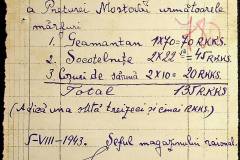 a Preturei Mostovoi următoarele
mărfuri
1. Geamantan 1x70=70 RKKS.
2. Socotelnițe 2x22 50=45 RKKS
3. Coșuri de sârmă 2x10=20 RKKS.
Total 135 RKKS
(Adică una sută treizeci și cinci RKKS.)
5-VIII-1943. Șeful magazinului raional.